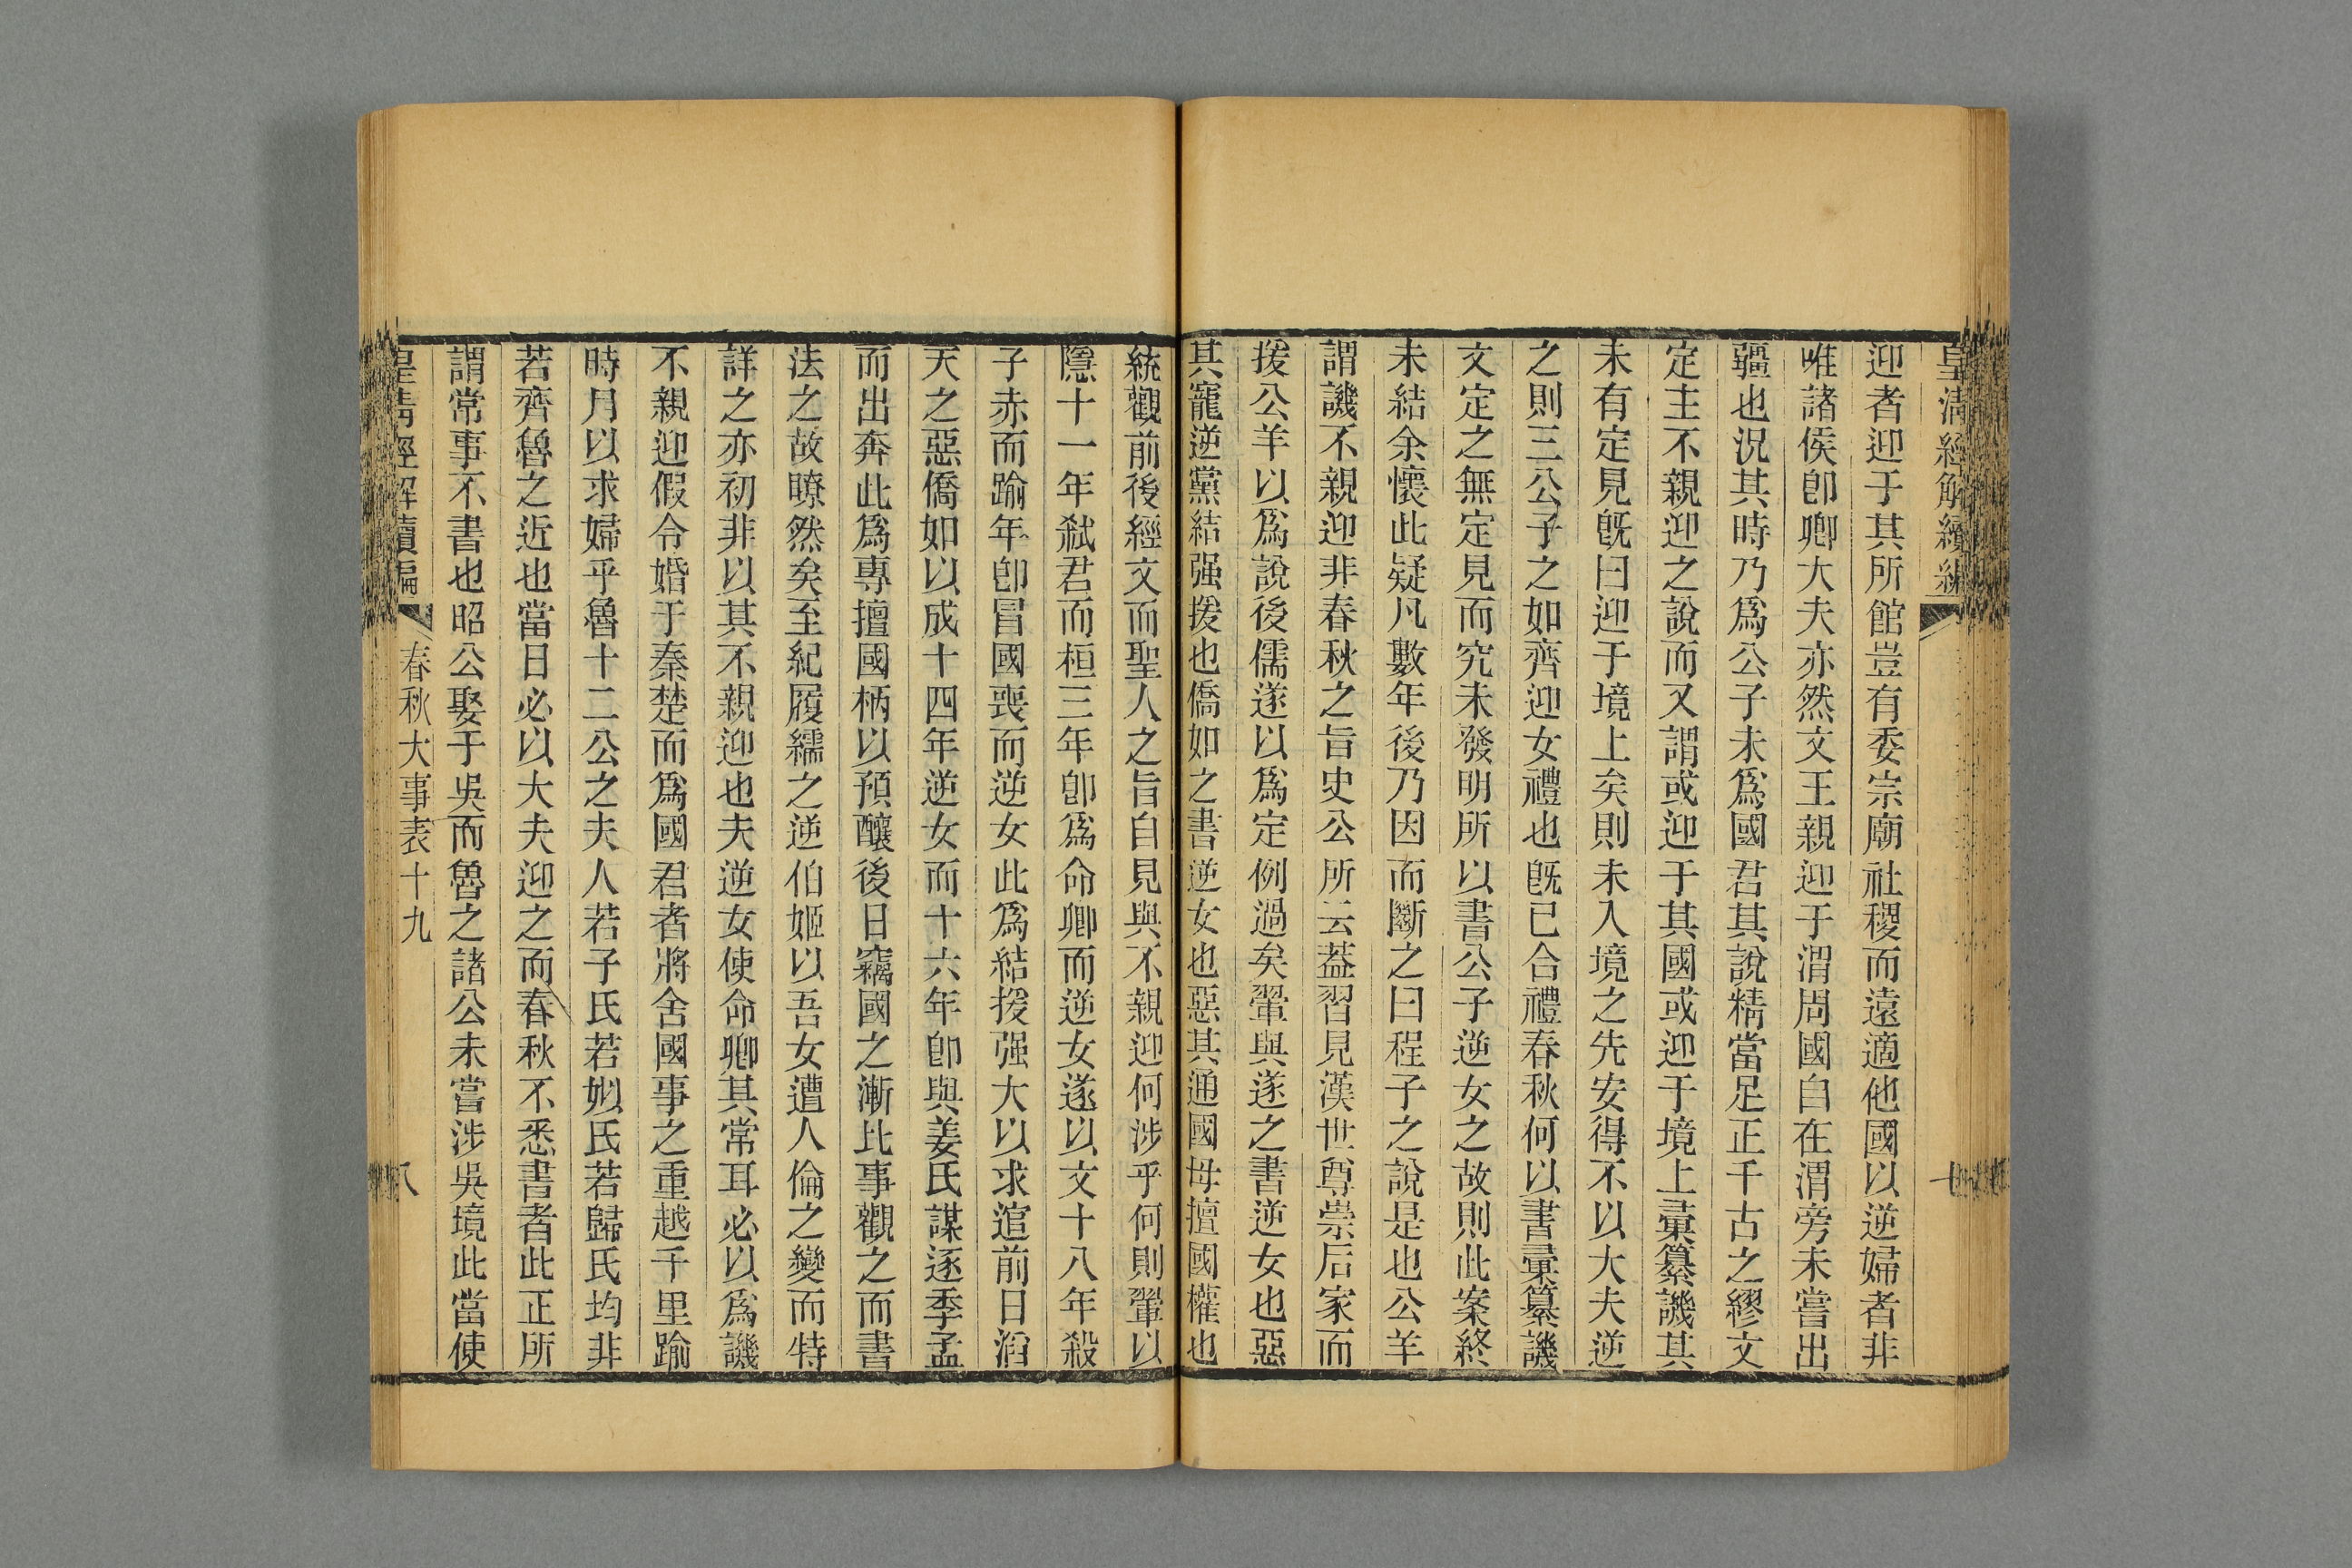 皇清經解續編
七
迎者迎于其所館豈有委宗廟社稷而遠適他國以逆婦者非
唯諸侯卽卿大夫亦然文王親迎于渭周國自在渭旁未嘗出
疆也況其時乃爲公子未爲國君其說精當足正千古之繆文
定主不親迎之說而又謂或迎于其國或迎于境上彙纂譏其
未有定見旣曰迎于境上矣則未入境之先安得不以大夫逆
之則三公子之如齊迎女禮也旣已合禮春秋何以書彙纂譏
文定之無定見而究未發明所以書公子逆女之故則此案終
未結余懷此疑凡數年後乃因而斷之曰程子之說是也公羊
謂譏不親迎非春秋之旨史公所云蓋習見漢世尊崇后家而
援公羊以爲說後儒遂以爲定例過矣翬與遂之書逆女也惡
其寵逆黨結强援也僑如之書逆女也惡其通國母擅國權也
統觀前後經文而聖人之旨自見與不親迎何涉乎何則翬以
隱十一年弒君而桓三年卽爲命卿而逆女遂以文十八年殺
子赤而踰年卽冒國喪而逆女此爲結援强大以求逭前日滔
天之惡僑如以成十四年逆女而十六年卽與姜氏謀逐季孟
而出奔此爲專擅國柄以預釀後日竊國之漸比事觀之而書
法之故瞭然矣至紀履繻之逆伯姬以吾女遭人倫之變而特
詳之亦初非以其不親迎也夫逆女使命卿其常耳必以爲譏
不親迎假令婚于秦楚而爲國君者將舍國事之重越千里踰
時月以求婦乎魯十二公之夫人若子氏若姒氏若歸氏均非
若齊魯之近也當日必以大夫迎之而春秋不悉書者此正所
謂常事不書也昭公娶于吳而魯之諸公未嘗涉吳境此當使
皇清經解續編
春秋大事表十九
八